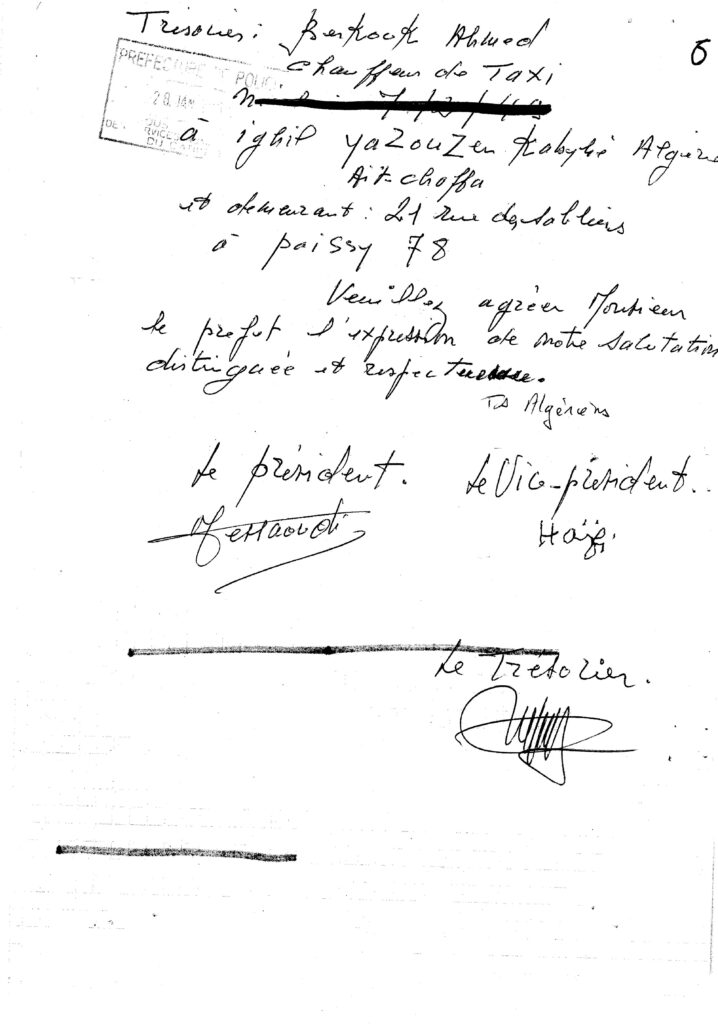 6
Trésorier : Berkouk Ahmed
PREFECTURE DE POLICE
28 JAN
chauffeur de Taxi
à ighil yazouzen Kabylie Algérie
Ait-choffa
et demeurant : 21 rue des sabliers
à poissy 78
Veuillez agréer Monsieur
le prefet l'expression de notre salutation
distinguée et respectueuse.
TS Algériens
Le président.
Le Vice-président.
Messaoudi
Le Trésorier.